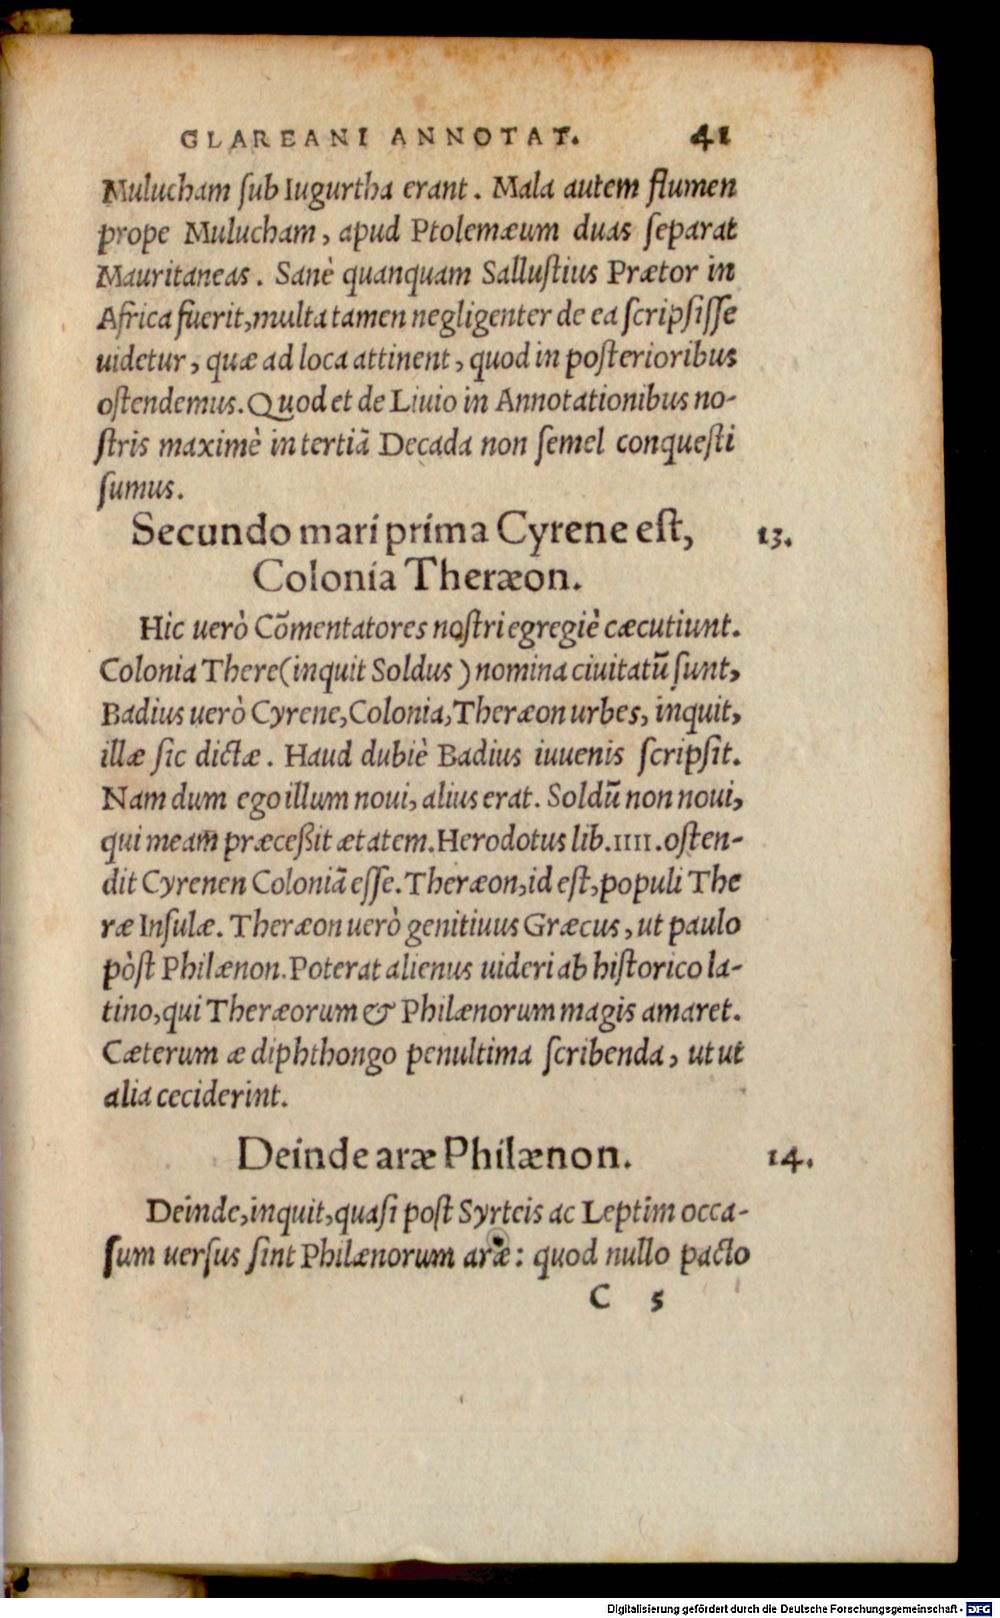 GLAREANI ANNOTAT. 41
Mulucham ſub Iugurtha erant. Mala autem flumen
prope Mulucham, apud Ptolemæum duas ſeparat
Mauritaneas. Sanè quanquam Salluſtius Prætor in
Africa fuerit, multa tamen negligenter de ea ſcripſiſſe
uidetur, quæ ad loca attinent, quod in poſterioribus
oſtendemus. Quod et de Liuio in Annotationibus no-
ſtris maximè in tertiã Decada non ſemel conqueſti
ſumus.
Secundo mari prima Cyrene eſt, 13.
Colonia Theræon.
Hic uerò Cõmentatores noſtri egregiè cæcutiunt.
Colonia There (inquit Soldus) nomina ciuitatũ ſunt,
Badius uerò Cyrene, Colonia, Theræon urbes, inquit,
illæ ſic dictæ. Haud dubiè Badius iuuenis ſcripſit.
Nam dum ego illum noui, alius erat. Soldũ non noui,
qui meam̃ præceßit ætatem. Herodotus lib. IIII. oſten-
dit Cyrenen Coloniã eſſe. Theræon, id eſt, populi The
ræ Inſulæ. Theræon uerò genitiuus Græcus, ut paulo
pòſt Philænon. Poterat alienus uideri ab hiſtorico la-
tino, qui Theræorum & Philænorum magis amaret.
Cæterum æ diphthongo penultima ſcribenda, ut ut
alia ceciderint.
Deinde aræ Philænon. 14.
Deinde, inquit, quaſi poſt Syrteis ac Leptim occa-
ſum uerſus ſint Philænorum aræ: quod nullo pacto
C 5
Digitalisierung gefördert durch die Deutsche Forschungsgemeinschaft - DFG